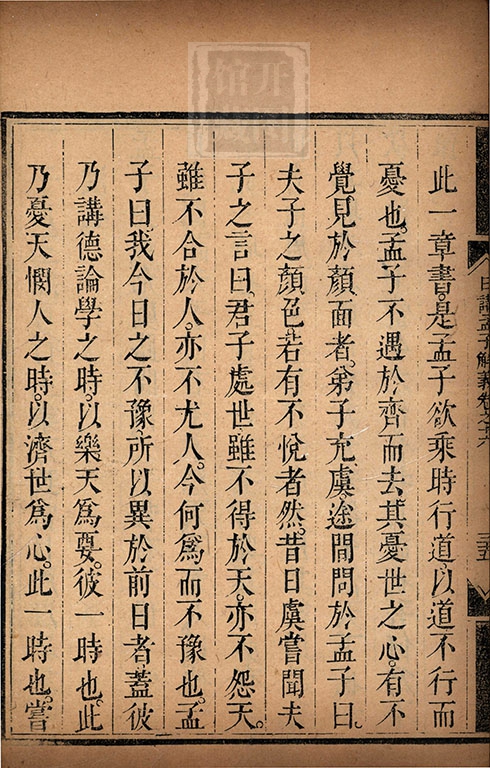 此一章書。是孟子欲乘時行道。以道不行而
憂也。孟子不遇於齊而去。其憂世之心。有不
覺見於顏面者。弟子充虞。途間問於孟子曰。
夫子之顏色。若有不悅者然。昔日虞嘗聞夫
子之言曰。君子處世。雖不得於天。亦不怨天。
雖不合於人。亦不尤人。今何爲而不豫也。孟
子曰。我今日之不豫。所以異於前日者。蓋彼
乃講德論學之時。以樂天爲要。彼一時也。此
乃憂天憫人之時。以濟世爲心。此一時也。嘗
日講孟子解義卷之六
三五